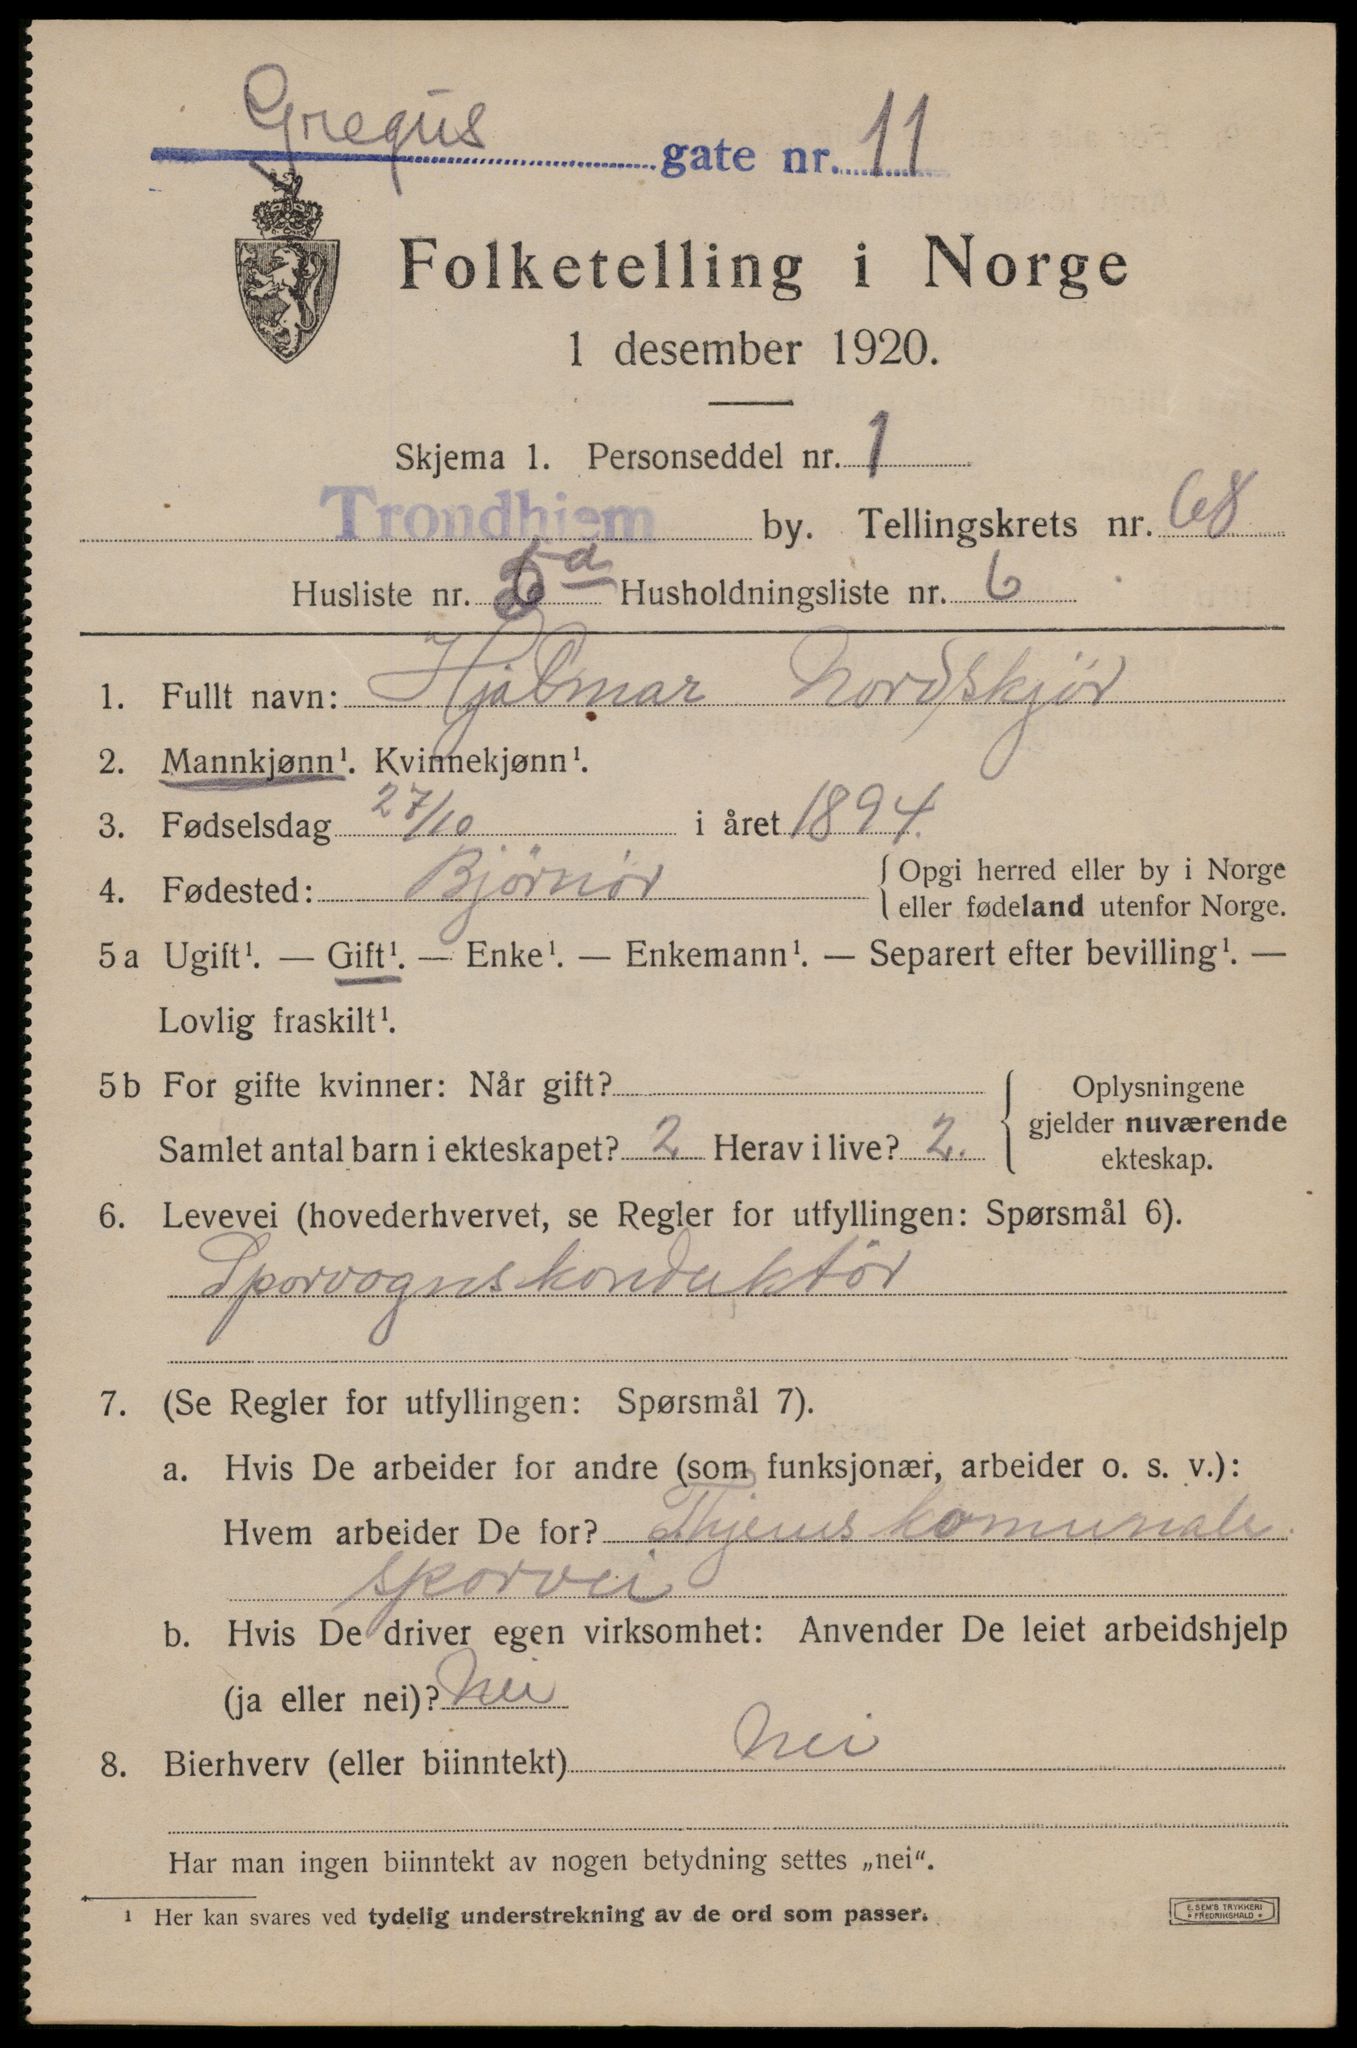 Gregus gate nr. 11
Folketelling i Norge
1 desember 1920.
Skjema 1. Personseddel nr. 1
Trondhjem by. Tellingskrets nr. 68
Husliste nr. Husholdningsliste nr. 6
1. Fullt navn: Hjalmar Nordskjør
2. Mannkjønn¹. Kvinnekjønn¹.
3. Fødselsdag 27/10 i året 1894.
4. Fødested: Bjørnør { Opgi herred eller by i Norge
eller fødeland utenfor Norge.
5a Ugift¹. — Gift¹. — Enke¹. — Enkemann¹. — Separert efter bevilling¹. —
Lovlig fraskilt¹.
5b For gifte kvinner: Når gift? { Oplysningene
gjelder nuværende
Samlet antal barn i ekteskapet? 2 Herav i live? 2.
ekteskap.
6. Levevei (hovederhvervet, se Regler for utfyllingen: Spørsmål 6).
Sporvognskonduktør
7. (Se Regler for utfyllingen: Spørsmål 7).
a. Hvis De arbeider for andre (som funksjonær, arbeider o. s. v.):
Hvem arbeider De for? Thjems komunale
sporvei
b. Hvis De driver egen virksomhet: Anvender De leiet arbeidshjelp
(ja eller nei)? Nei
8. Bierhverv (eller biinntekt) Nei
Har man ingen biinntekt av nogen betydning settes „nei“.
¹ Her kan svares ved tydelig understrekning av de ord som passer.
E. SEM'S TRYKKERI
* FREDRIKSHALD *